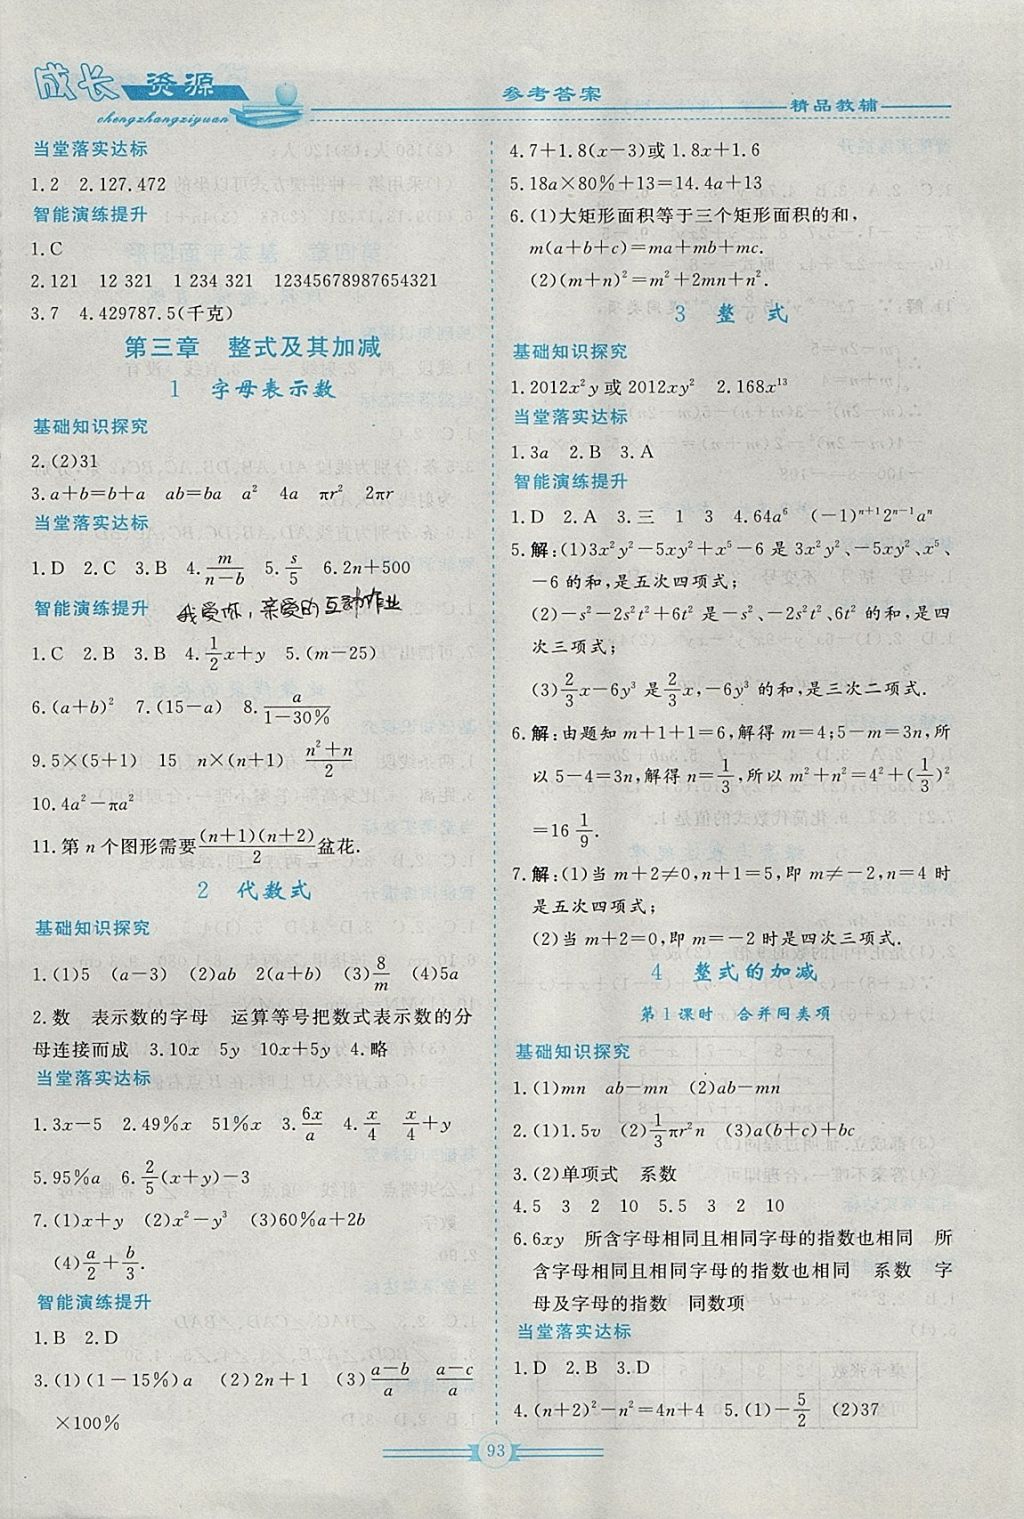 成长 资源
chengzhangziyuan
参考答案
精品教辅
当堂落实达标
1.2 2.127.472
智能演练提升
1.C
2.121 12321 1 234 321 12345678987654321
3.7 4.429787.5(千克)
第三章 整式及其加减
1 字母表示数
基础知识探究
2.(2)31
3.a+b=b+a ab=ba a² 4a πr² 2πr
当堂落实达标
1.D 2.C 3.B 4.m/(n-b) 5.s/5 6.2n+500
智能演练提升 我爱你,亲爱的互动作业
1.C 2.B 3.B 4.1/2x+y 5.(m-25)
6.(a+b)² 7.(15-a) 8.a/(1-30%)
9.5×(5+1) 15 n×(n+1) (n²+n)/2
10.4a²-πa²
11.第n个图形需要(n+1)(n+2)/2盆花.
2 代数式
基础知识探究
1.(1)5 (a-3) (2)ab 2(a+b) (3)8/m (4)5a
2.数 表示数的字母 运算等号把数式表示数的分
母连接而成 3.10x 5y 10x+5y 4.略
当堂落实达标
1.3x-5 2.49%x 51%x 3.6x/a 4.x/4 x/4+y
5.95%a 6.2/5(x+y)-3
7.(1)x+y (2)x²-y³ (3)60%a+2b
(4)a/2+b/3.
智能演练提升
1.B 2.D
3.(1)(1-15%)a (2)2n+1 (3)(a-b)/a (a-c)/a
×100%
4.7+1.8(x-3)或1.8x+1.6
5.18a×80%+13=14.4a+13
6.(1)大矩形面积等于三个矩形面积的和,
m(a+b+c)=ma+mb+mc.
(2)(m+n)²=m²+2mn+n².
3 整式
基础知识探究
1.2012x²y或2012xy² 2.168x¹³
当堂落实达标
1.3a 2.B 3.A
智能演练提升
1.D 2.A 3.三 1 3 4.64a⁶ (-1)ⁿ⁺¹2ⁿ⁻¹aⁿ
5.解:(1)3x²y²-5xy²+x⁵-6是3x²y²、-5xy²、x⁵、
-6的和,是五次四项式;
(2)-s²-2s²t²+6t²是-s²、-2s²t²、6t²的和,是四
次三项式;
(3)2/3x-6y³是2/3x,-6y³的和,是三次二项式.
6.解:由题知m+1+1=6,解得m=4;5-m=3n,所
以5-4=3n,解得n=1/3,所以m²+n²=4²+(1/3)²
=16 1/9.
7.解:(1)当m+2≠0,n+1=5,即m≠-2,n=4时
是五次四项式;
(2)当m+2=0,即m=-2时是四次三项式.
4 整式的加减
第1课时 合并同类项
基础知识探究
1.(1)mn ab-mn (2)ab-mn
2.(1)1.5v (2)1/3πr²n (3)a(b+c)+bc
3.(2)单项式 系数
4.5 3 2 10 5.5 3 2 10
6.6xy 所含字母相同且相同字母的指数也相同 所
含字母相同且相同字母的指数也相同 系数 字
母及字母的指数 同数项
当堂落实达标
1.D 2.B 3.D
4.(n+2)²-n²=4n+4 5.(1)-5/2 (2)37
93